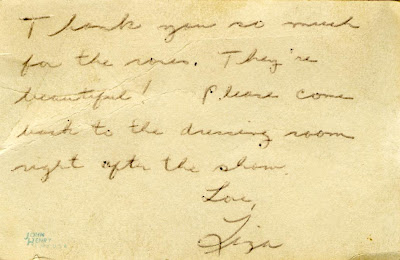 Thank you so much
for the roses. They're
beautiful! Please come
back to the dressing room
right after the show.
Love,
Liza
JOHN
HENRY